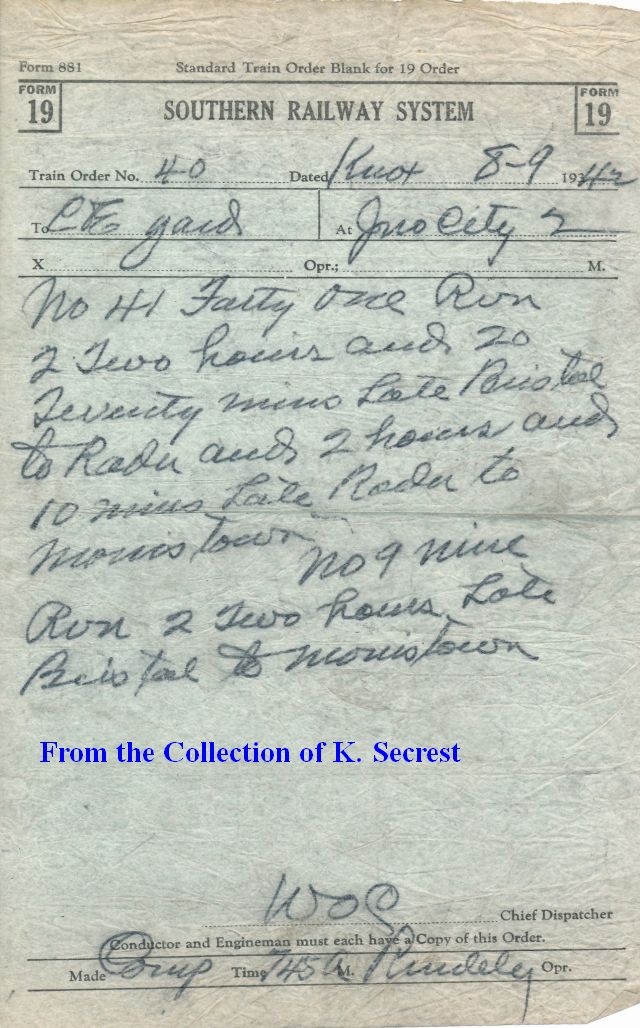 Form 881 Standard Train Order Blank for 19 Order
FORM 19 SOUTHERN RAILWAY SYSTEM FORM 19
Train Order No. 40 Dated Knox 8-9 1942
To C&E yard At Jno City 2
X Opr.; M.
No 41 Forty one Run
2 Two hours and 20
Twenty mins Late Bristol
to Rader and 2 hours and
10 mins Late Rader to
Morristown No 9 nine
Run 2 Two hours Late
Bristol to Morristown
From the Collection of K. Secrest
Chief Dispatcher
Conductor and Engineman must each have a Copy of this Order.
Made Comp Time 745 A M. Opr.